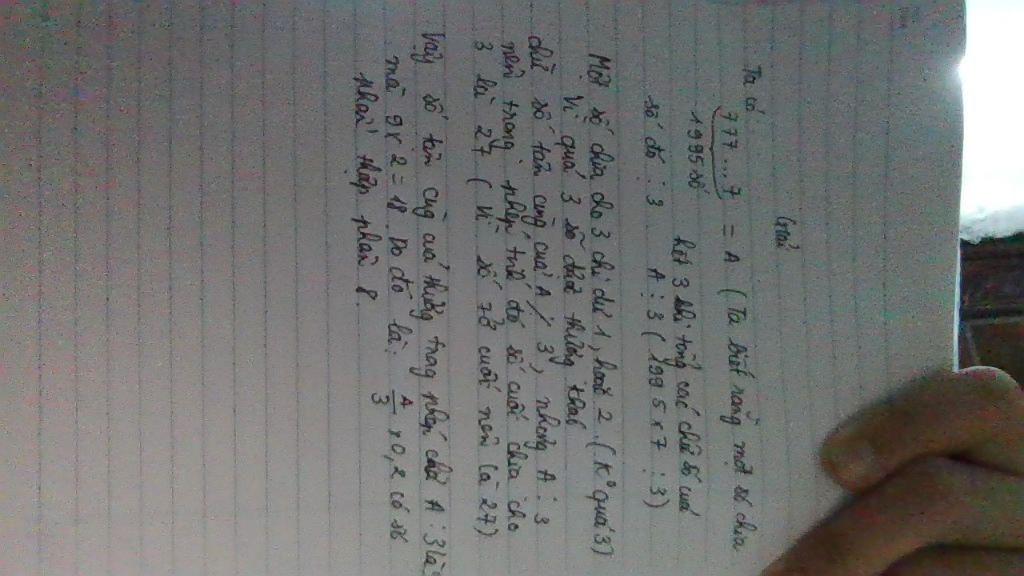 Giải
Ta có
777...7 = A (Ta biết rằng một số chia
1995 số hết 3 khi tổng các chữ số của
số đó : 3 A : 3 (1995 x 7 : 3)
Một số chia cho 3 chỉ dư 1, hoặc 2. (K° quá 3)
Vì quá 3 sẽ đặt thương
chữ số tận cùng của A 3, nhưng A : 3
nên trong phép tính đó số cuối chia cho
3 là 27 (Vì số 7 ở cuối nên là 27).
Vậy số tận cùng của thương trong phép chia A : 3 là
mà 9 x 2 = 18 Do đó là: A/3 x 0,2 có số
phần thập phân 8.